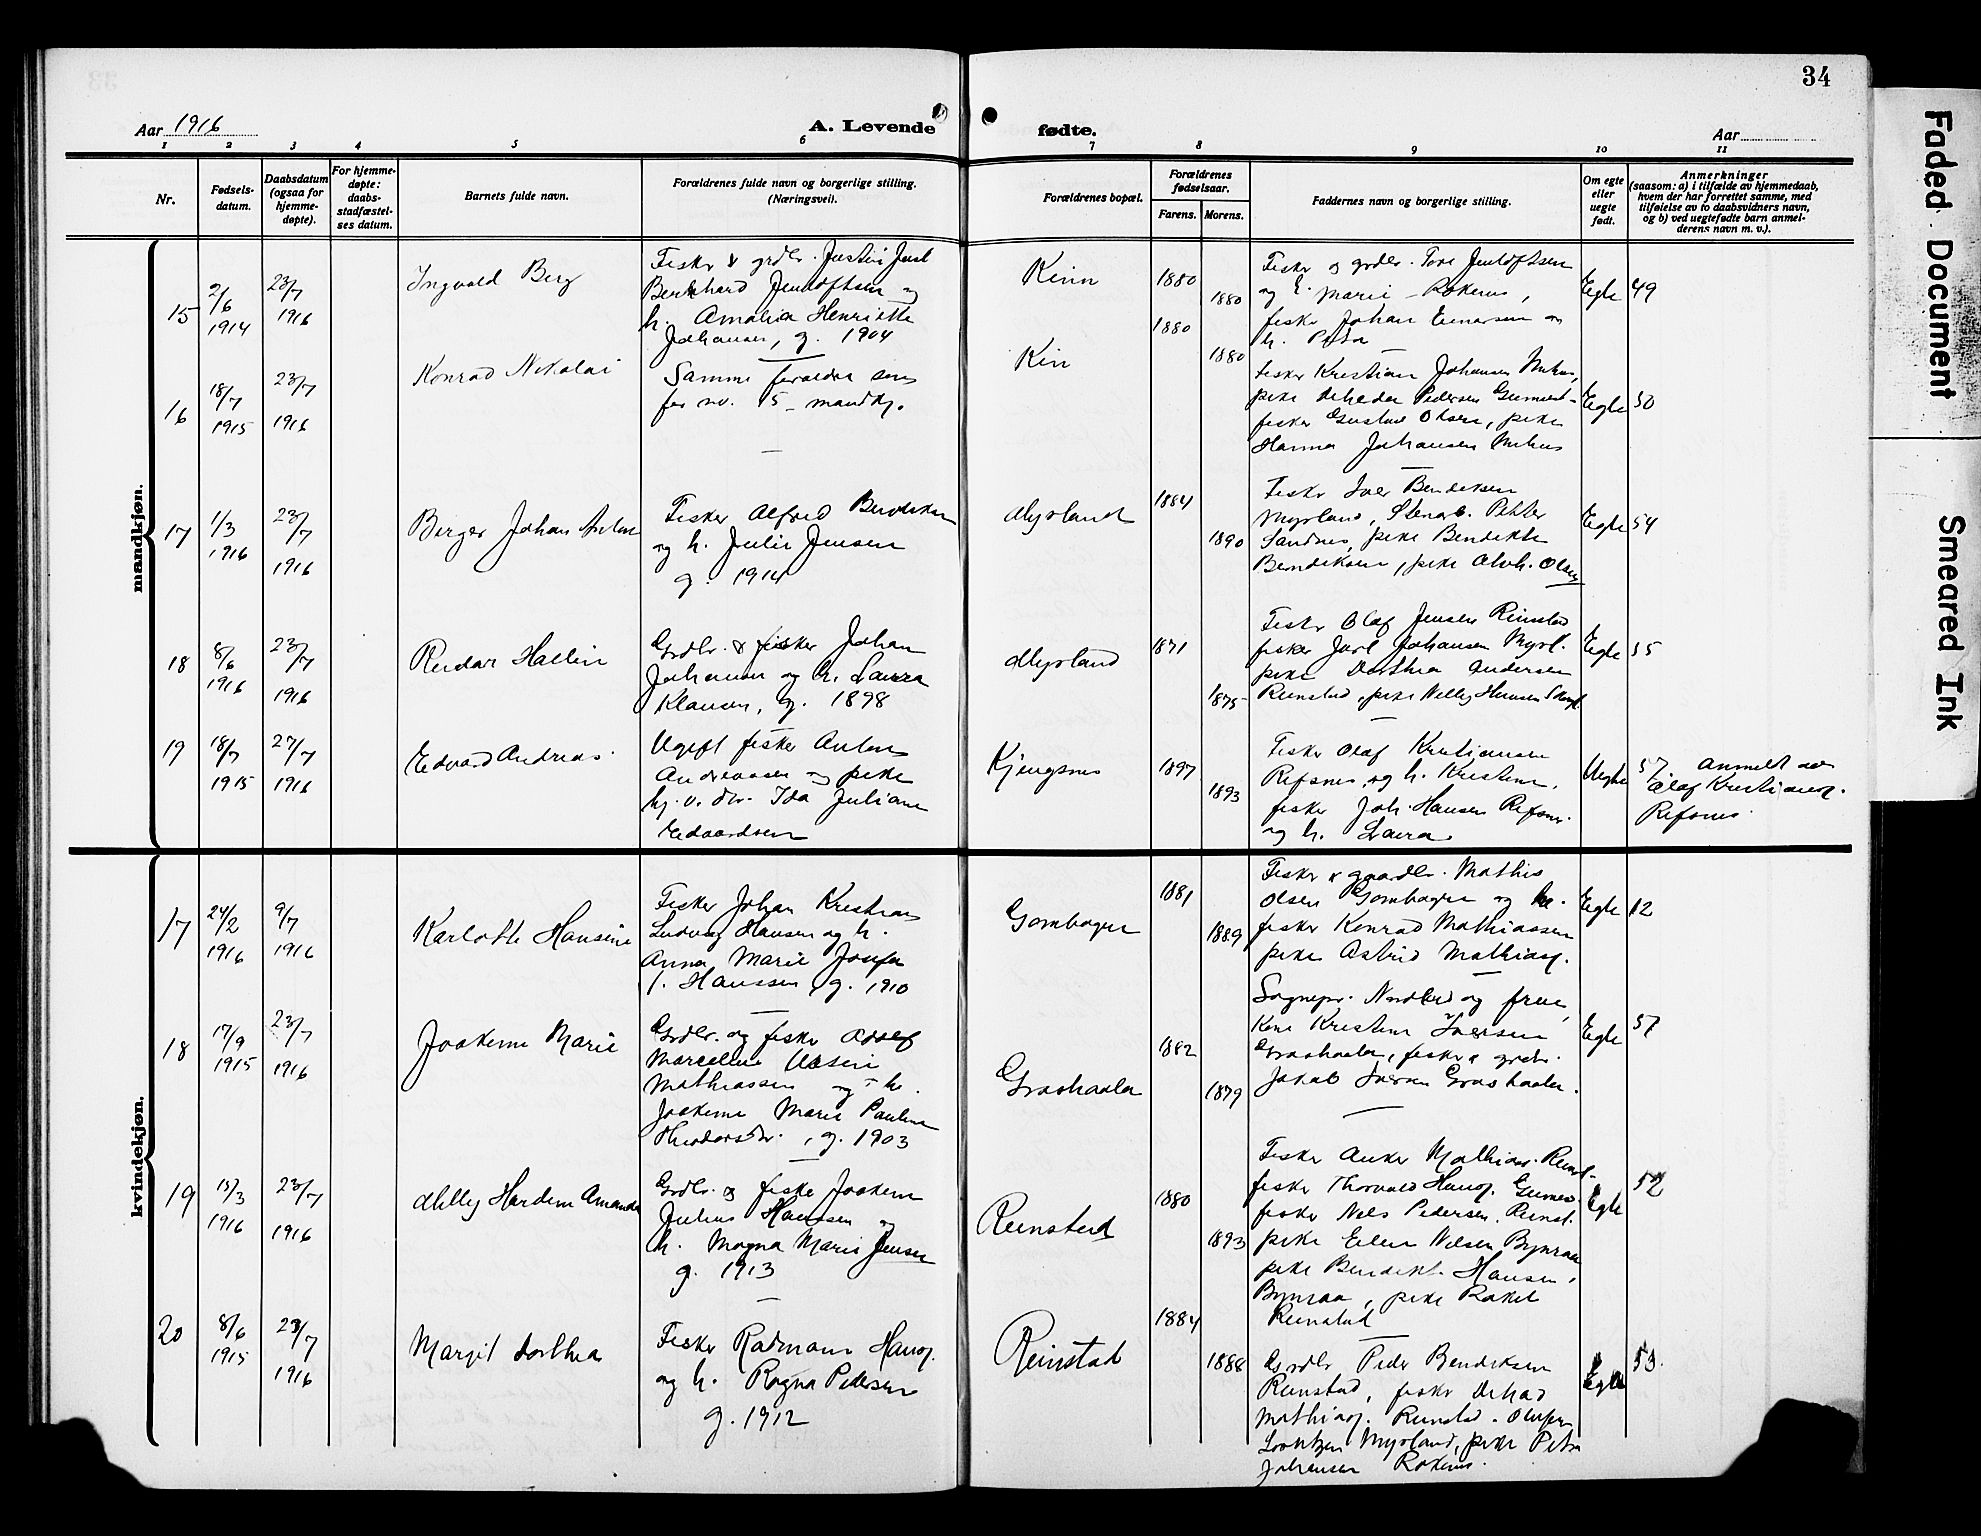 34
Aar 1916
A. Levende
fødte.
Aar
1 2 3 4 5 6 7 8 9 10 11
Nr.
Fødsels-
datum.
Daabsdatum
(ogsaa for
hjemme-
døpte).
For hjemme-
døpte:
daabs-
stadfæstel-
ses datum.
Barnets fulde navn.
Forældrenes fulde navn og borgerlige stilling.
(Næringsvei).
Forældrenes bopæl.
Forældrenes
fødselsaar.
Farens. Morens.
Faddernes navn og borgerlige stilling.
Om egte
eller
uegte
født.
Anmerkninger
(saasom: a) i tilfælde av hjemmedaab,
hvem der har forrettet samme, med
tilføielse av to daabsvidners navn,
og b) ved uegtefødte barn anmel-
derens navn m. v.).
mandkjøn.
15
2/6
1914
23/7
1916
Ingvald Berg
Fisker & grdbr.
Bernhard
h. Amalia Henriette
Johansen, g. 1904
Kinn
1880
1880
1880
Fisker og grdbr. Tore
og Marie
fisker Johan Einarsen og
h.
Egte
49
16
18/7
1915
23/7
1916
Konrad Nikolai
Samme forældre som
for nr. 15 mandkj.
Kin
1880
fisker Kristian Johansen
pike Pedersen
fisker Gustav Olsen, pike
Hanna Johansen
Egte
50
17
1/3
1916
23/7
1916
Birger Johan Anton
Fisker Alfred Bendiksen
og h. Julie Jensen
g. 1914
Myrland
1884
1890
Fisker Iver Bendiksen
Myrland,
Sandnes, pike Bendikte
Bendiksen, pike Olsen
Egte
54
18
8/6
1916
23/7
1916
Reidar Hallin
Grdbr. & fisker Johan
Johansen og h. Laura
Klausen, g. 1898
Myrland
1871
1875
Fisker Olaf Jensen Reinstad
fisker Jarl Johansen Myrl.
pike Dorthea Andersen
Reinstad, pike Nelly Hansen
Egte
55
19
18/7
1915
27/7
1916
Edvard Andreas
Ugift fisker Anton
Andreassen og pike
hj. v. Ida Juliane
Edvardsen
Kjengsnes
1897
1893
Fisker Olaf Kristiansen
Refsnes, og h. Kristine,
fisker Joh. Hansen Refsnes
og h. Laura
Uegte
57 anmeldt av
Olaf Kristians.
Refsnes
kvindekjøn.
17
24/2
1916
9/7
1916
Karlotte Hansine
Fisker Johan Kristian
Ludvig Hansen og h.
Anna Marie Josefa
f. Hanssen, g. 1910
Gombogen
1881
1889
Fisker & gaardbr. Mathis
Olsen Gombogen og h.
fisker Konrad Mathiassen
pike Astrid Mathias.
Egte
12
18
17/9
1915
23/7
1916
Joakime Marie
Grdbr. og fisker Adolf
Marcelius
Mathiassen og h.
Joakime Marie Pauline
Theodorsdtr., g. 1903
Grashaalen
1882
1879
Sognepr. Nordlid og frue,
Kone Kristine Iversen
Grashaalen, fisker & grdbr.
Jakob Iversen Grashaalen.
Egte
57
19
15/3
1916
23/7
1916
Milly Hardine Amanda
Grdbr. og fisker Joakim
Julius Hanssen og
h. Magna Marie Jensen
g. 1913
Reinstad
1880
1893
Fisker Anker Mathias. Reinst.
fisker Thorvald Hans.
fisker Nils Pedersen Reinst.
pike Ellen Nilsen Bynraa
pike Bendikt. Hansen,
Bynraa, pike Rakel
Reinstad
Egte
52
20
8/6
1915
23/7
1916
Margit Dorthea
Fisker Radmann Hans.
og h. Ragna Pedersen
g. 1912
Reinstad
1884
1888
Grdbr Peder Bendiksen
Reinstad, fisker
Mathias. Reinstad.
Myrland, pike Petra
Johansen
Egte
53.
Faded Document
Smeared Ink